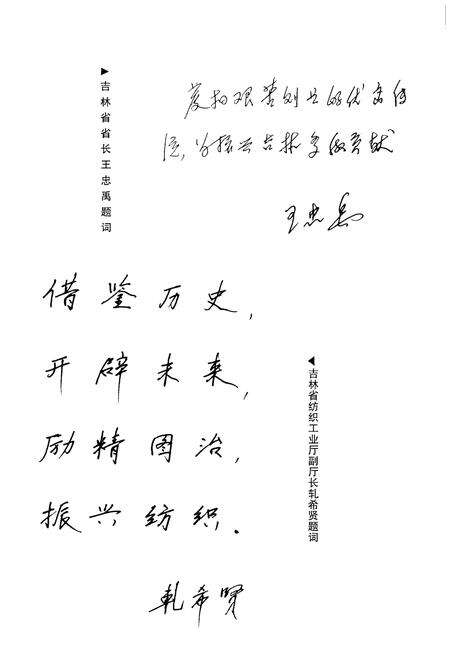 ▶吉林省省长王忠禹题词
发扬艰苦创业的优良传
统，为振兴吉林多做贡献
王忠禹
借鉴历史，
开辟未来，
励精图治，
振兴纺织．
▶吉林省纺织工业厅副厅长轧希贤题词
轧希贤